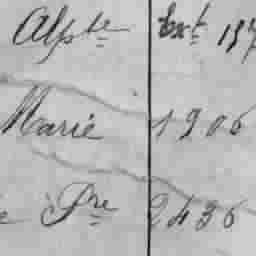 Alpte Ext 137
Marie 1906
Pre 2436